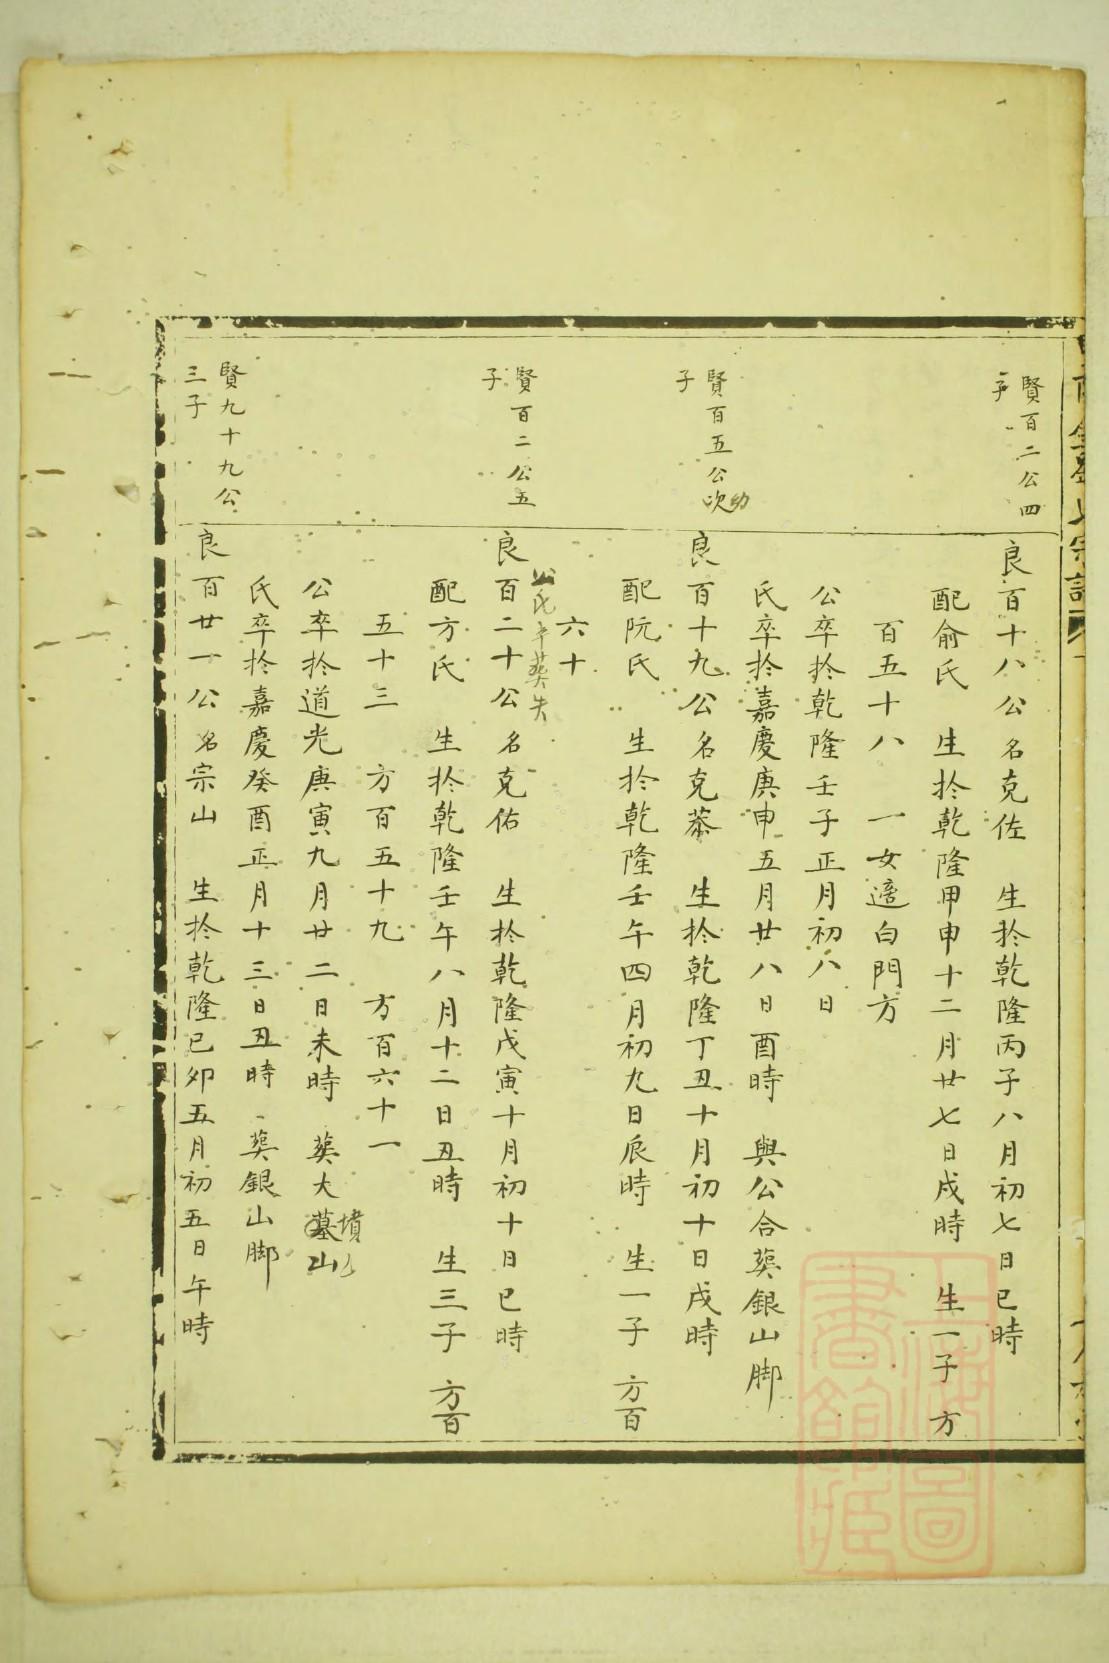 賢百二公四
子
良百十八公 名克佐 生扵乾隆丙子八月初七日巳時
配俞氏 生扵乾隆甲申十二月廿七日戌時 生一子 方
百五十八 一女適白門方
公卒扵乾隆壬子正月初八日
氏卒扵嘉慶庚申五月廿八日酉時 與公合葬銀山脚
賢百五公次
幼
子
良百十九公 名克恭 生扵乾隆丁丑十月初十日戌時
配阮氏 生扵乾隆壬午四月初九日辰時 生一子 方百
六十
公氏卒葬失
賢百二公五
子
良百二十公 名克佑 生扵乾隆戊寅十月初十日巳時
配方氏 生扵乾隆壬午八月十二日丑時 生三子 方百
五十三 方百五十九 方百六十一
公卒扵道光庚寅九月廿二日未時 葬大墓山
墳
氏卒扵嘉慶癸酉正月十三日丑時 葬銀山脚
賢九十九公
三子
良百廿一公 名宗山 生扵乾隆已卯五月初五日午時